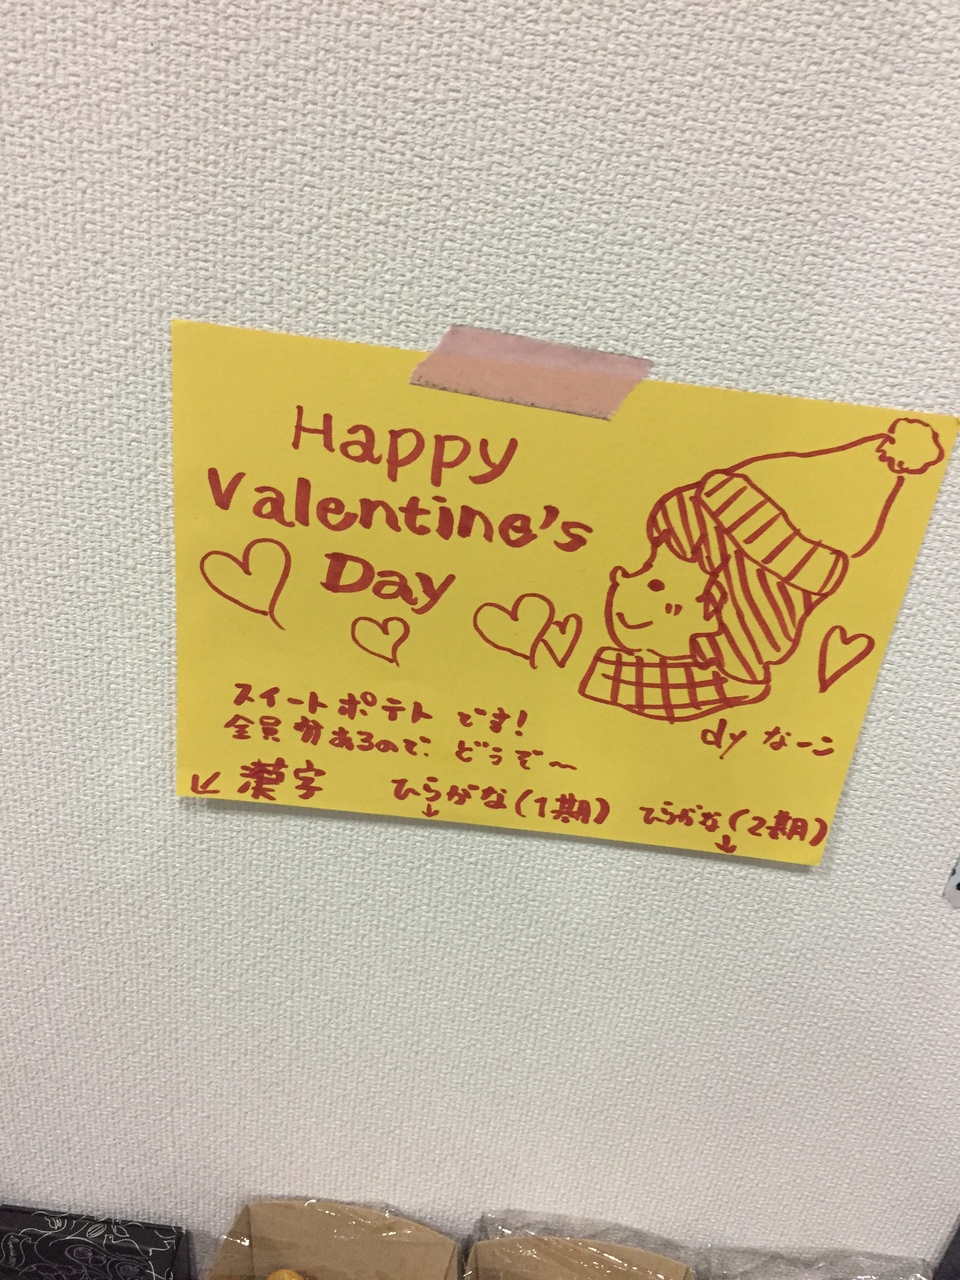 Happy
Valentine's
Day
スイートポテトです!
全員分あるので、どうぞ〜
dy なーこ
↙ 漢字 ひらがな(1期) ひらがな(2期)
↓ ↓